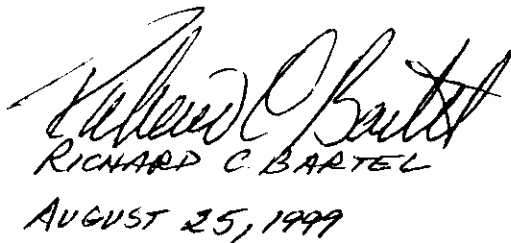 Richard C Bartel
RICHARD C. BARTEL
AUGUST 25, 1999